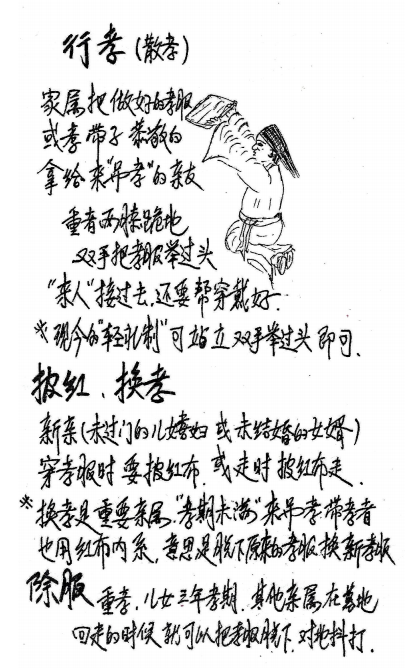 行孝(散孝)
家属把做好的孝服
或孝带子 恭敬的
拿给来"吊孝"的亲友
重者两膝跪地
双手把孝服举过头
"来人"接过去,还要帮穿戴好.
※现今的"轻礼制"可站立双手举过头即可.
披红、换孝
新亲(未过门的儿媳妇 或 未结婚的女婿)
穿孝服时要披红布 或走时披红布走.
※换孝是重要亲属,"孝期未满"来吊孝带孝者
也用红布内系,意思是脱下原来的孝服换新孝服
除服 重孝,儿女三年孝期,其他亲属在墓地
回走的时候就可以把孝服脱下.对地抖打.